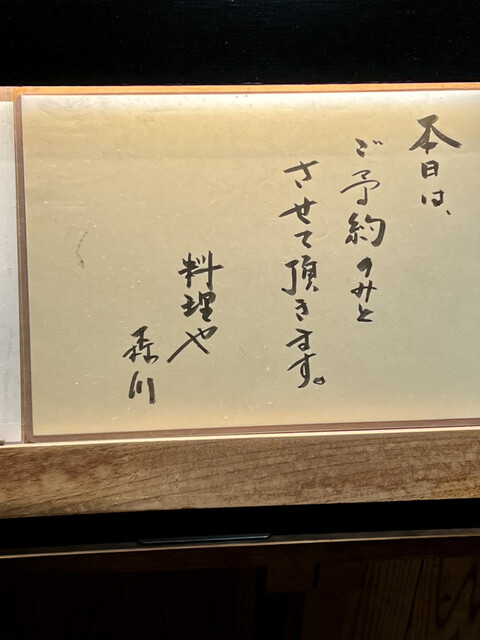 本日は、
ご予約のみと
させて頂きます。
料理や
森川